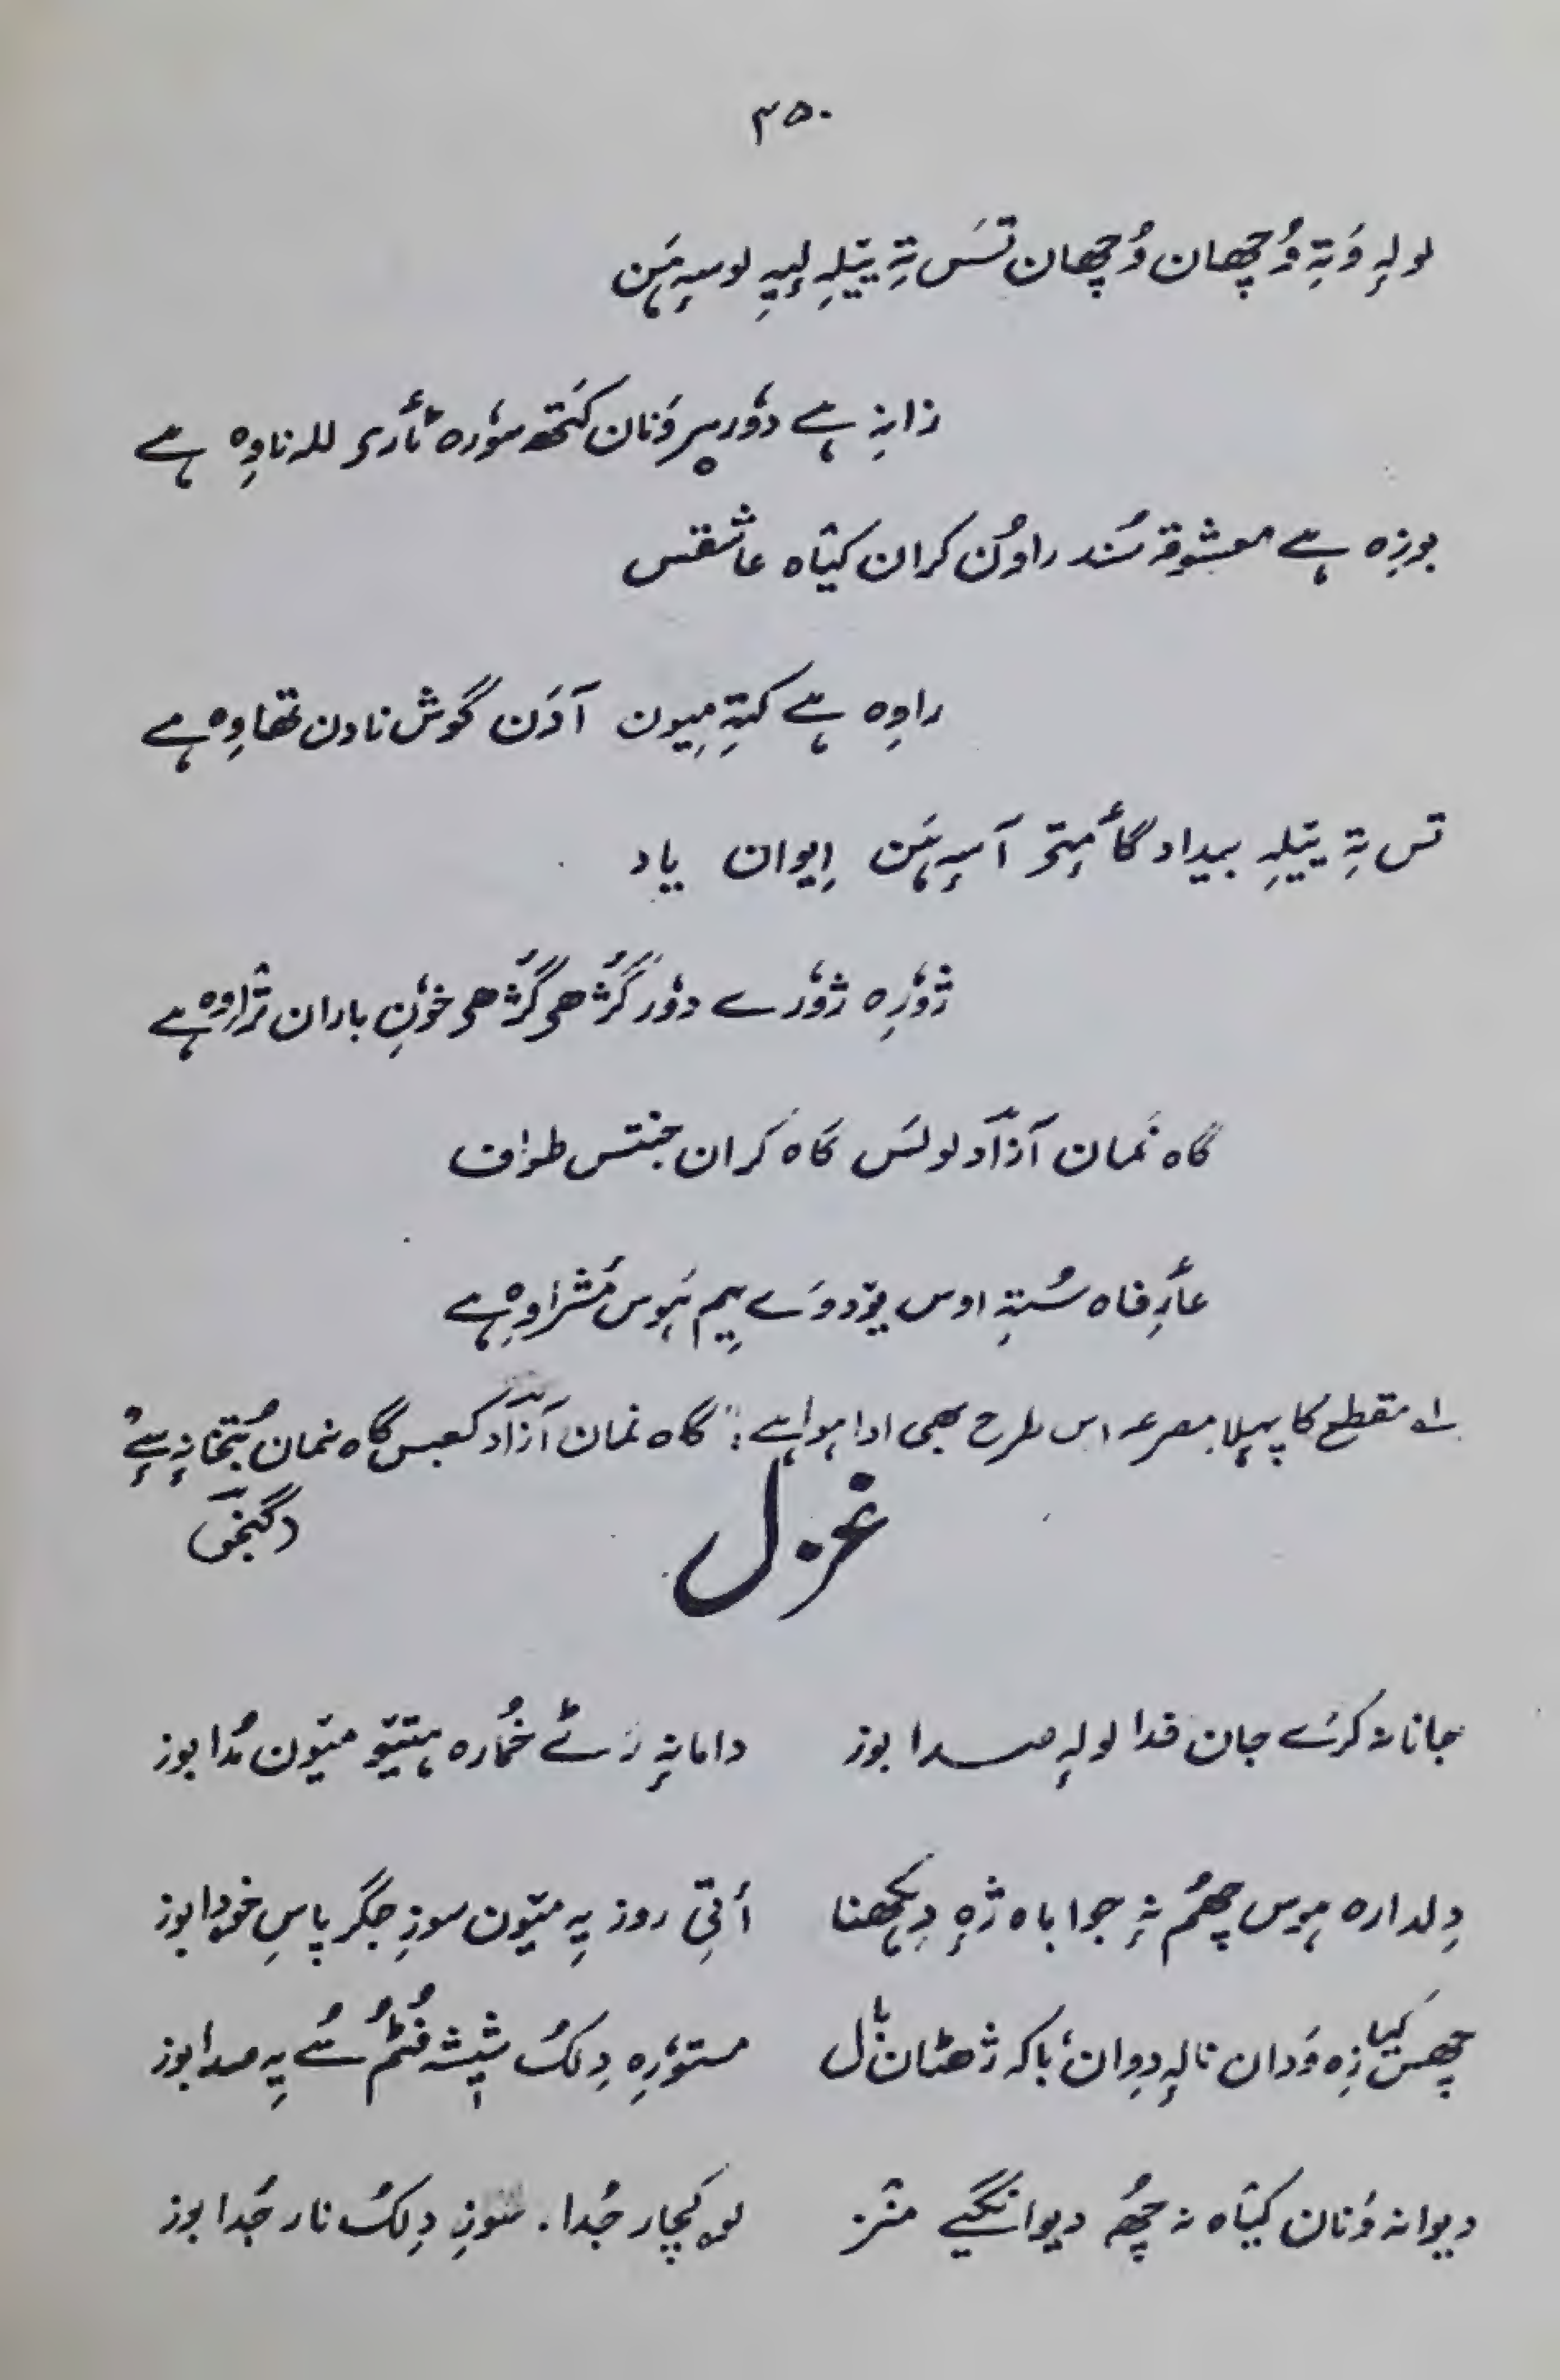 ۳۵۰
لولہِ وَتہِ وُچھان وُچھان تَس تہِ یتیلہِ لیہِ لوسہِ ہَن
زانہِ ہے دوٗر پرٕ وَنان کَتھ سوٗرہ تأری للہ ناوِہ ہے
بوزِہ ہے معشوقہ سُند راوُن کران کیٛاہ عاشقس
راوِہ ہے کتہِ میون آدَن گوش نادن تھاوِہ ہے
تس تہِ یتیلہِ بیداد گأمتی آسہِ ہَن اِیوان یاد
ژوٗرِہ ژوٗرے دوٗر گژُھی گژُھی خوٗنِ باران ترٛاوِہ ہے
گاہ نَمان آزاد لولَس گاہ کَران جنتس طواف
عأرِفاہ سُتہِ اوس یوٚدوَے یِیم ہَوس مُشراوِہ ہے
لہ مقطع کا پہلا مصرعہ اس طرح بھی ادا ہوا ہے: "گاہ نمان آزاد کعبس گاہ نمان بُتخانہٕ سٕے"
غزل
جانانہ کرَے جان فدا لولہٕ صدا بوز دامانہٕ رَٹے خُمارہ ہتیو میٛون مُدا بوز
دِلدارہ ہوس چھُم نہٕ جواباہ ژٕہ دِکھنا أتی روز یہِ میٛون سوزِ جگر پاسِ خۄدا بوز
چھس کیا زِہ وَدان نالہٕ دِوان باکہ ژھٹان نال مستوٗرِہ دِلکُ شیٖشہ فُٹُم سُے یہِ صدا بوز
دیوانہ وَنان کیٛاہ نہ چھُہ دیوانگیے منٛز لوکچار جُدا. سوزِ دِلکُ نار جُدا بوز